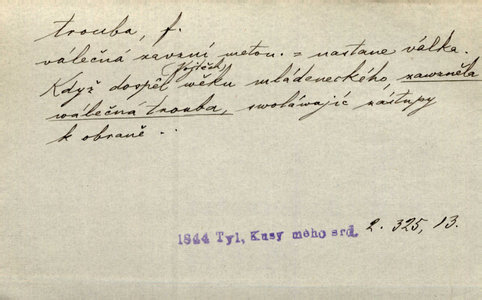 trouba, f.
válečná zavzní meton. = nastane válka.
Když dospěl Vojtěch wěku mládeneckého, zawzněla
wálečná trouba, swoláwajíc zástupy
k obraně ..
1844 Tyl, Kusy mého srd. 2. 325, 13.